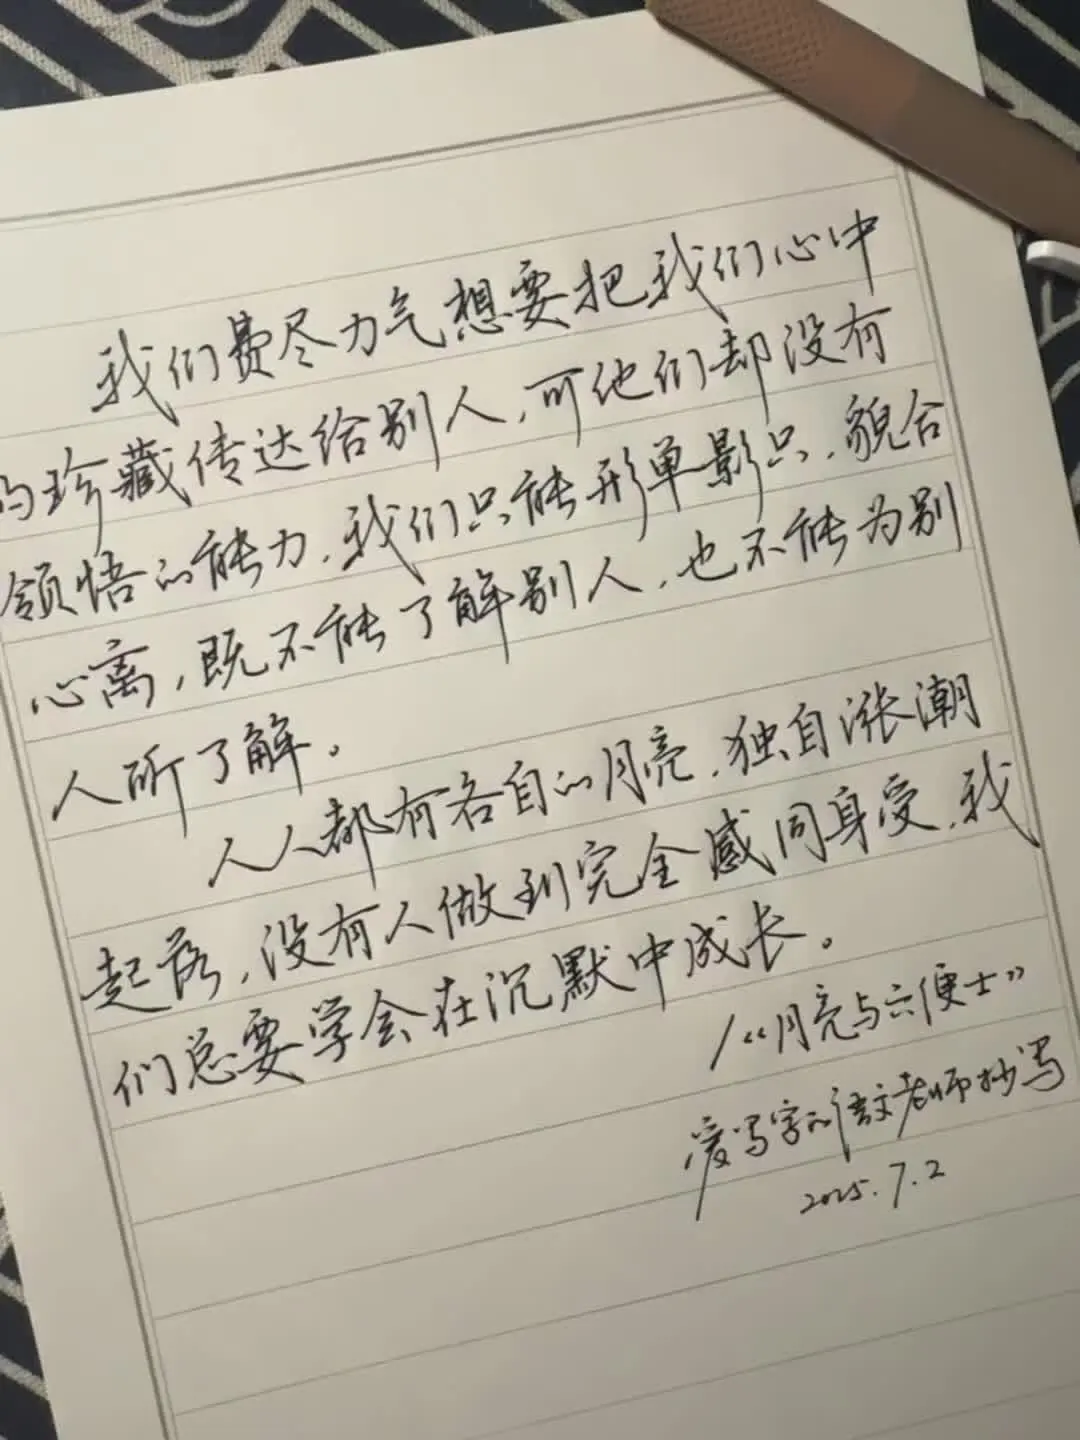 我们费尽力气想要把我们心中
的珍藏传达给别人，可他们却没有
领悟的能力，我们只能形单影只，貌合
心离，既不能了解别人，也不能为别
人所了解。
人人都有各自的月亮，独自涨潮
起落，没有人做到完全感同身受，我
们总要学会在沉默中成长。
/《月亮与六便士》
爱写字的语文老师抄写
2025.7.2